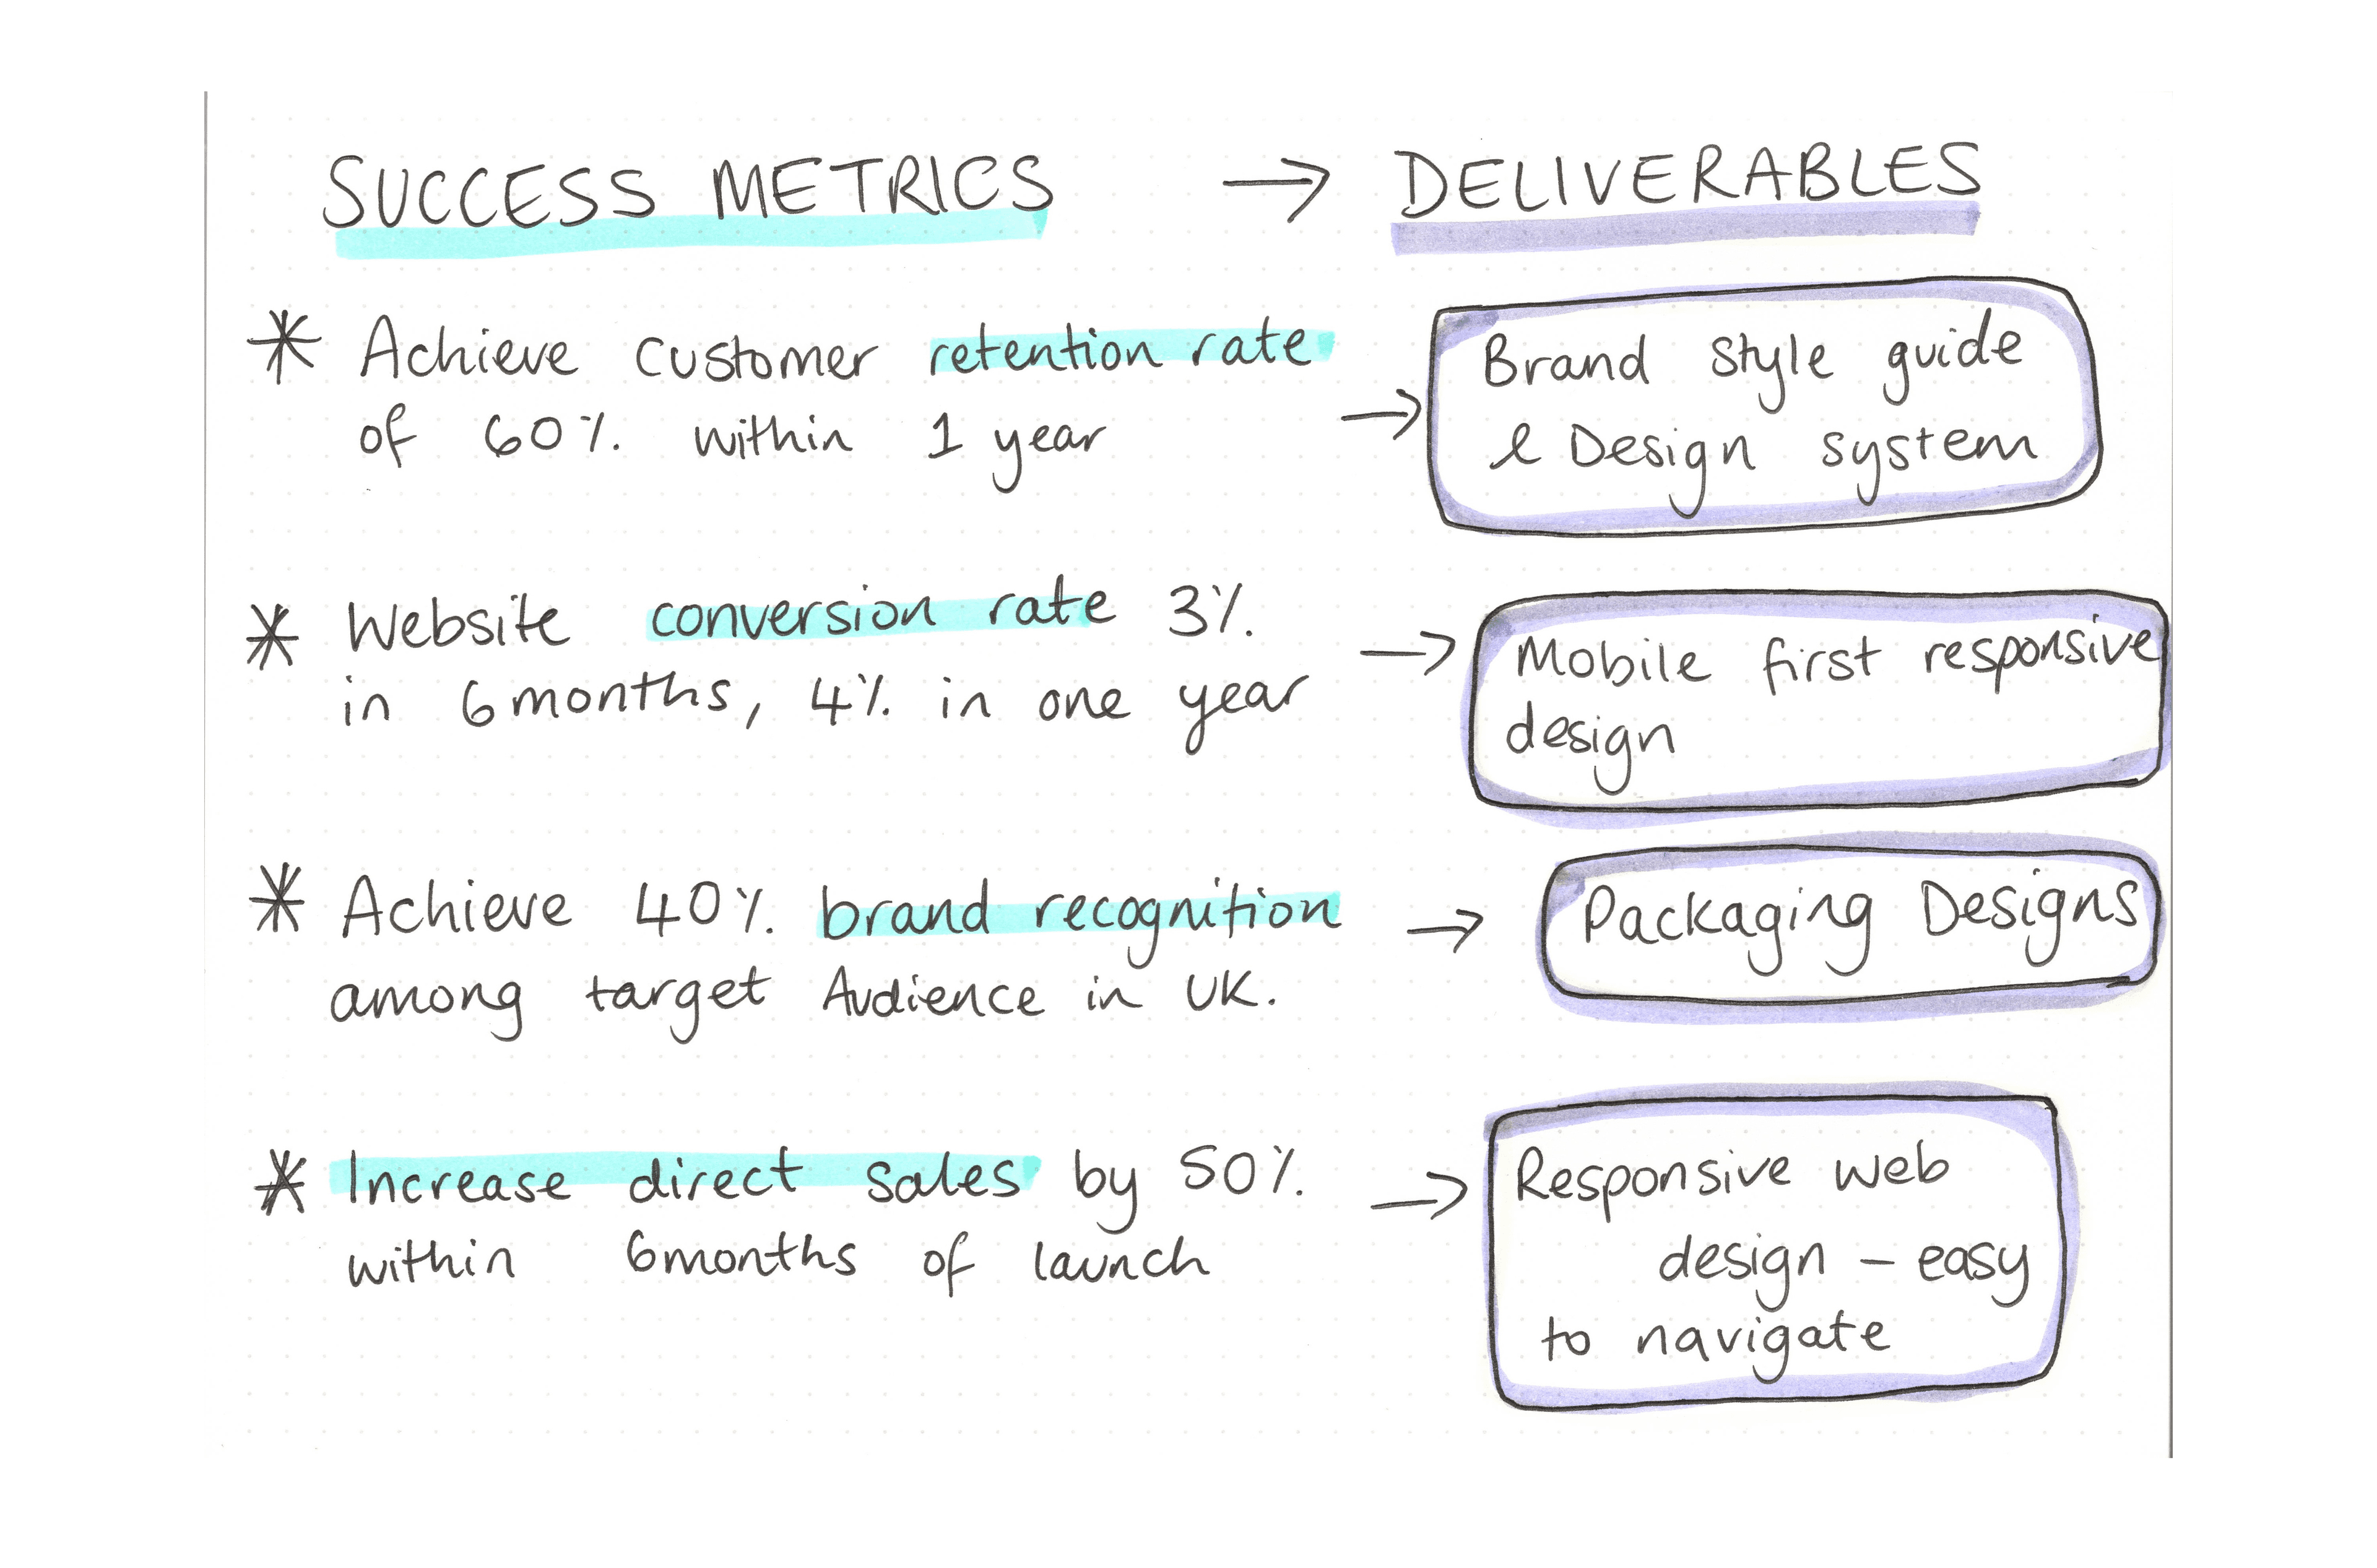 SUCCESS METRICS → DELIVERABLES
* Achieve customer retention rate
of 60% within 1 year
→ Brand style guide
& Design system
* Website conversion rate 3%
in 6 months, 4% in one year
→ Mobile first responsive
design
* Achieve 40% brand recognition
among target Audience in UK.
→ Packaging Designs
* Increase direct sales by 50%
within 6 months of launch
→ Responsive web
design – easy
to navigate